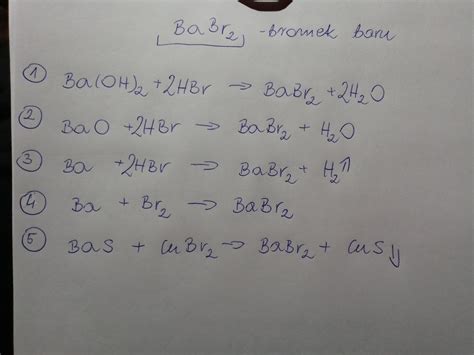 BaBr₂ - bromek baru
① Ba(OH)₂ + 2HBr → BaBr₂ + 2H₂O
② BaO + 2HBr → BaBr₂ + H₂O
③ Ba + 2HBr → BaBr₂ + H₂↑
④ Ba + Br₂ → BaBr₂
⑤ BaS + CuBr₂ → BaBr₂ + CuS↓